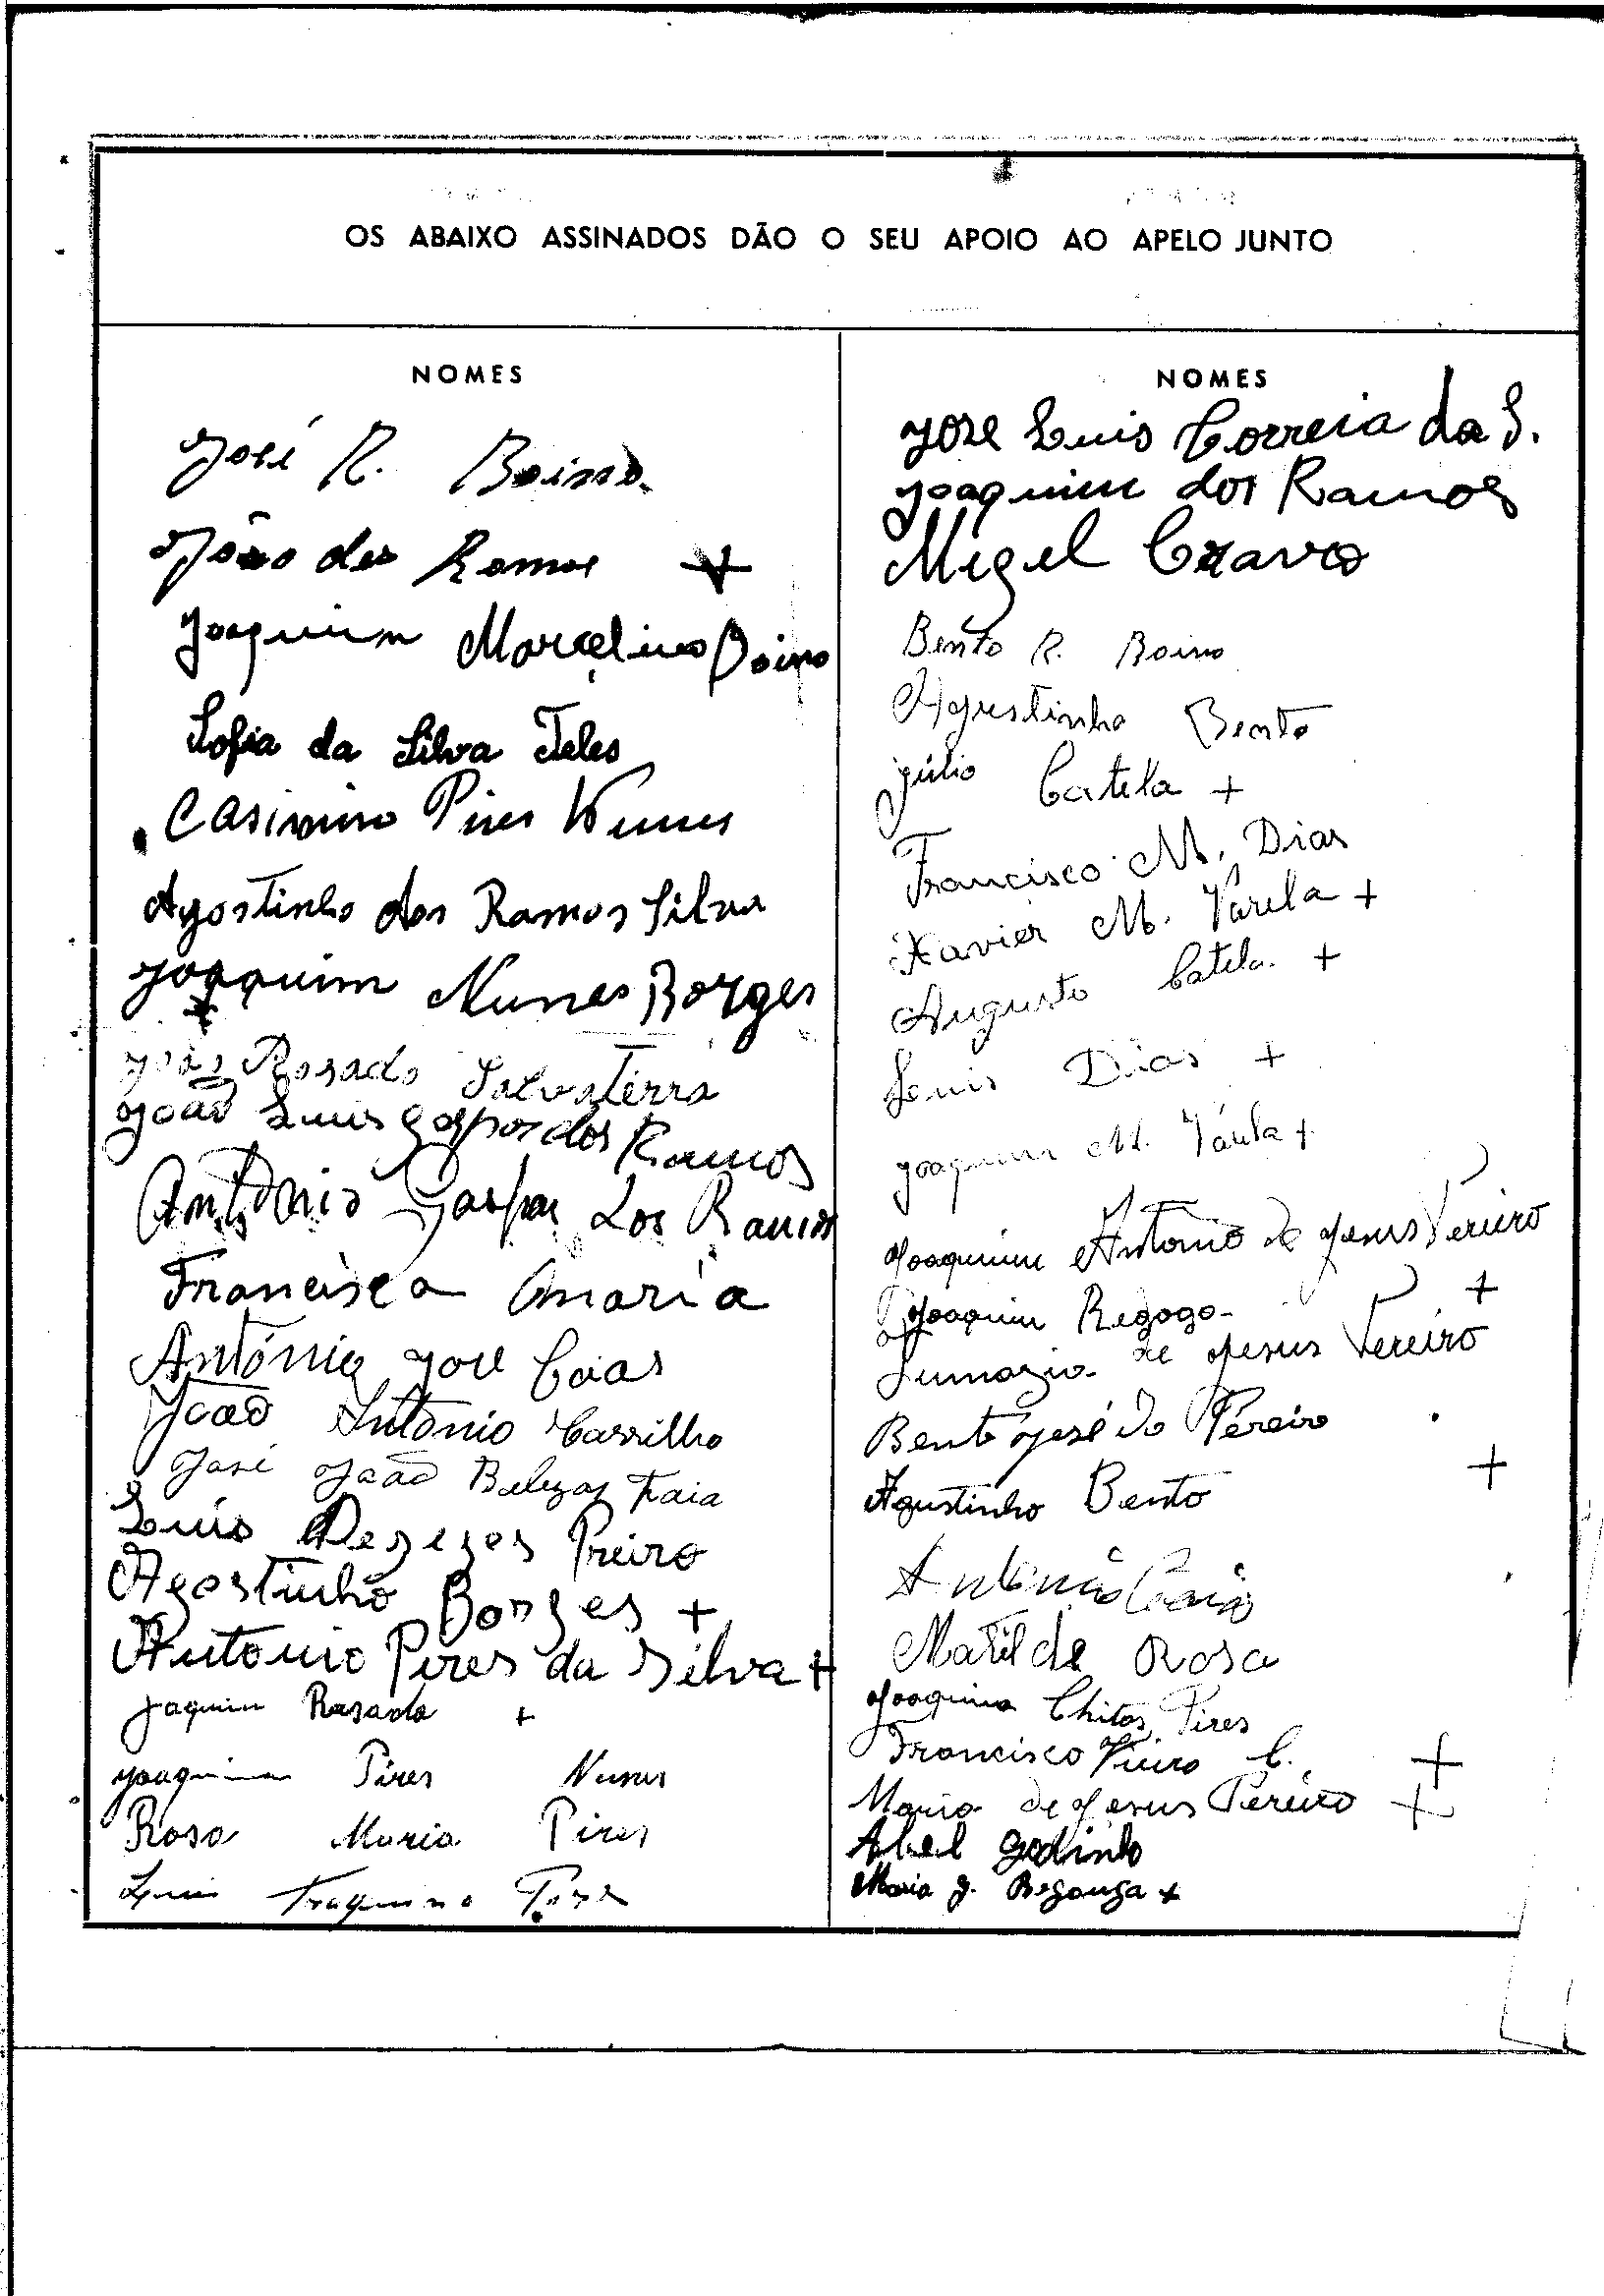 OS ABAIXO ASSINADOS DÃO O SEU APOIO AO APELO JUNTO
NOMES
José R. Boino
João dos Ramos +
Joaquim Marcelino Boino
Sofia da Silva Teles
Casimiro Pires Nunes
Agostinho dos Ramos Silva
Joaquim Nunes Borges
João Rosado Salvaterra
João Luis Gaspar dos Ramos
António Gaspar dos Ramos
Francisca Maria
António José Caias
João António Carrilho
José João Belezas Faia
Luis
Agostinho Borges +
Antonio Pires da Silva +
Jaquim Rasado +
Joaquim Pires Nunes
Rosa Maria Pires
Luis
NOMES
José Luis Correia da S.
Joaquim dos Ramos
Migel Cravo
Bento R. Boino
Agustinho Bento
Júlio Catela +
Francisco M. Dias
Xavier M. Varela +
Augusto Catela +
Luis Dias +
Joaquim M. Varela +
Joaquim António de Jesus Pereiro
Joaquim Regogo +
de Jesus Pereiro
Bento José do Pereiro
Agustinho Bento +
António
Matilde Rosa
Joaquina Chitas Pires
Francisco C. +
Maria de Jesus Pereiro +
Abel Godinho
Maria J. +